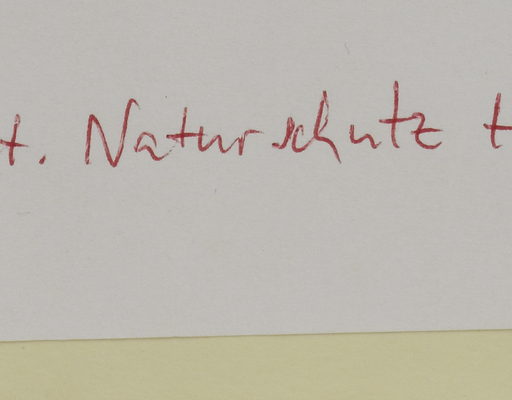 t. Naturschutz t